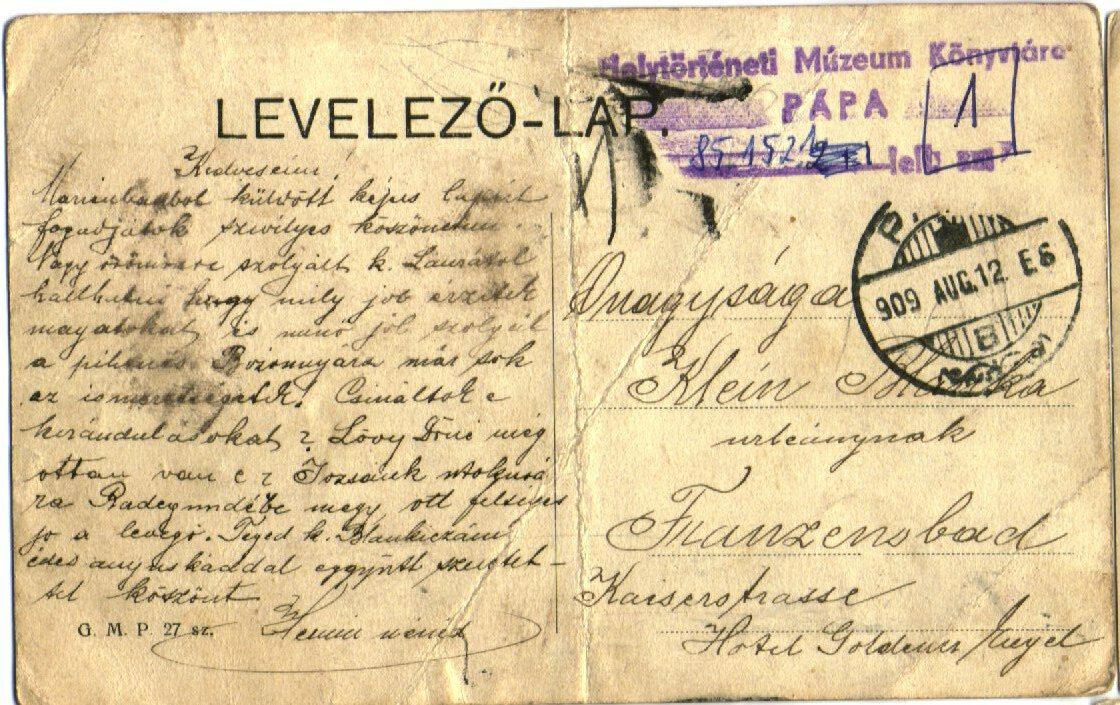 Helytörténeti Múzeum Könyvtára
PÁPA
1
LEVELEZŐ-LAP.
Kedveseim!
Marienbadbol küldött képes lapért
fogadjátok szivélyes köszönetem.
Nagy örömömre szolgált k. Laurától
hallhatni hogy mily jol érzitek
magatokat is minő jól szolgál
a pihenés. Bizonnyára már sok
az ismerősötök. Csináltok e
kirándulásokat? Lövy még
ottan van e?
Radegundéba megy, ott felséges
jo a levegő. Téged k.
édes anyuskáddal eggyütt szeretet-
tel köszönt
néni
G. M. P. 27 sz.
909 AUG. 12. E6
B
Őnagysága
Klein
urleánynak
Franzensbad
Kaiserstrasse
Hotel Goldener